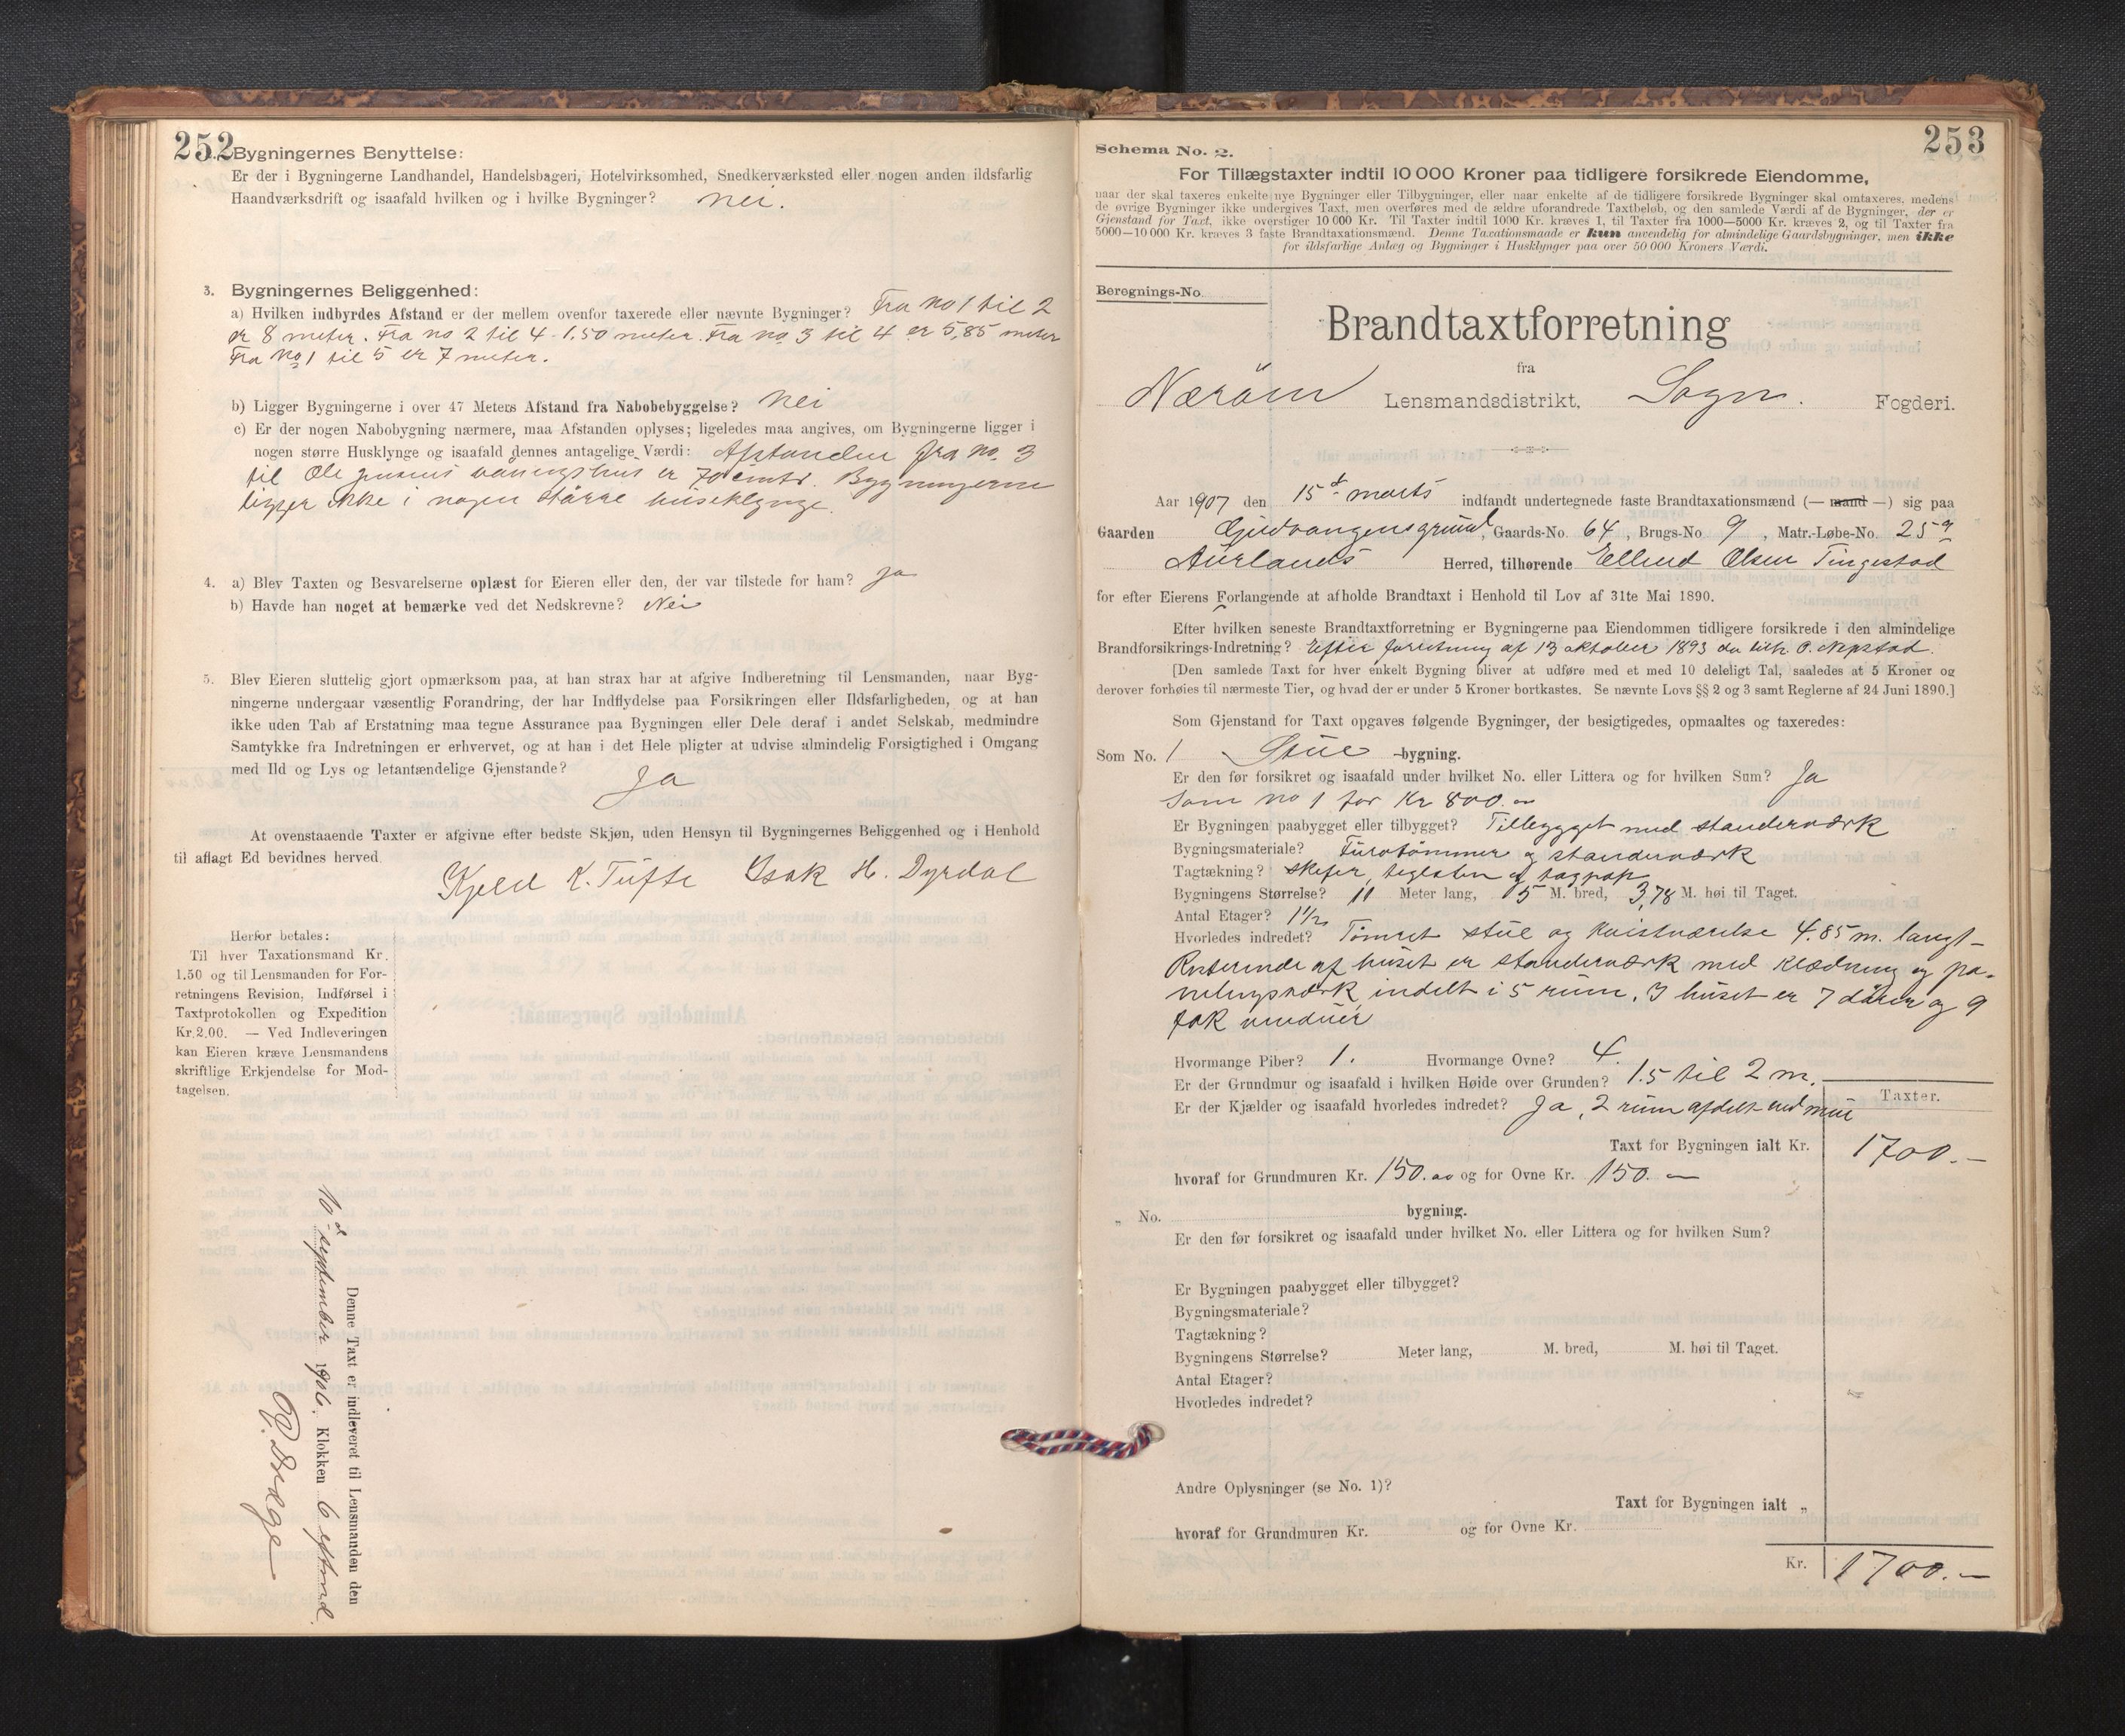 252
Bygningernes Benyttelse:
Er der i Bygningerne Landhandel, Handelsbageri, Hotelvirksomhed, Snedkerværksted eller nogen anden ildsfarlig
Haandværksdrift og isaafald hvilken og i hvilke Bygninger? nei.
3. Bygningernes Beliggenhed:
a) Hvilken indbyrdes Afstand er der mellem ovenfor taxerede eller nævnte Bygninger? Fra no 1 til 2
er 8 meter. Fra no 2 til 4 - 1.50 meter. Fra no 3 til 4 er 5,85 meter
Fra no 1 til 5 er 7 meter.
b) Ligger Bygningerne i over 47 Meters Afstand fra Nabobebyggelse? Nei
c) Er der nogen Nabobygning nærmere, maa Afstanden oplyses; ligeledes maa angives, om Bygningerne ligger i
nogen større Husklynge og isaafald dennes antagelige Værdi: Afstanden fra no. 3
til Ole våningshus er 70 cmtr. Bygningerne
ligger ikke i nogen större huseklynge.
4. a) Blev Taxten og Besvarelserne oplæst for Eieren eller den, der var tilstede for ham? ja
b) Havde han noget at bemærke ved det Nedskrevne? Nei
5. Blev Eieren sluttelig gjort opmærksom paa, at han strax har at afgive Indberetning til Lensmanden, naar Byg-
ningerne undergaar væsentlig Forandring, der har Indflydelse paa Forsikringen eller Ildsfarligheden, og at han
ikke uden Tab af Erstatning maa tegne Assurance paa Bygningen eller Dele deraf i andet Selskab, medmindre
Samtykke fra Indretningen er erhvervet, og at han i det Hele pligter at udvise almindelig Forsigtighed i Omgang
med Ild og Lys og letantændelige Gjenstande? Ja
At ovenstaaende Taxter er afgivne efter bedste Skjøn, uden Hensyn til Bygningernes Beliggenhed og i Henhold
til aflagt Ed bevidnes herved.
Kjeld K. Tufte Isak H. Dyrdal
Herfor betales:
Til hver Taxationsmand Kr.
1.50 og til Lensmanden for For-
retningens Revision, Indførsel i
Taxtprotokollen og Expedition
Kr. 2.00. — Ved Indleveringen
kan Eieren kræve Lensmandens
skriftlige Erkjendelse for Mod-
tagelsen.
Denne Taxt er indleveret til Lensmanden den
10d september 1906. Klokken 6 eftmd.
253
Schema No. 2.
For Tillægstaxter indtil 10 000 Kroner paa tidligere forsikrede Eiendomme,
naar der skal taxeres enkelte nye Bygninger eller Tilbygninger, eller naar enkelte af de tidligere forsikrede Bygninger skal omtaxeres, medens
de øvrige Bygninger ikke undergives Taxt, men overføres med de ældre uforandrede Taxtbeløb, og den samlede Værdi af de Bygninger, der er
Gjenstand for Taxt, ikke overstiger 10 000 Kr. Til Taxter indtil 1000 Kr. kræves 1, til Taxter fra 1000—5000 Kr. kræves 2, og til Taxter fra
5000—10 000 Kr. kræves 3 faste Brandtaxationsmænd. Denne Taxationsmaade er kun anvendelig for almindelige Gaardsbygninger, men ikke
for ildsfarlige Anlæg og Bygninger i Husklynger paa over 50 000 Kroners Værdi.
Beregnings-No.
Brandtaxtforretning
fra
Nærøens Lensmandsdistrikt, Sogn. Fogderi.
Aar 1907 den 15d marts indfandt undertegnede faste Brandtaxationsmænd (— mand —) sig paa
Gaarden Gudvangensgrund, Gaards-No. 64, Brugs-No 9, Matr.-Løbe-No. 25 a
Aurlands Herred, tilhørende Ellend Olsen Tingestad
for efter Eierens Forlangende at afholde Brandtaxt i Henhold til Lov af 31te Mai 1890.
Efter hvilken seneste Brandtaxtforretning er Bygningerne paa Eiendommen tidligere forsikrede i den almindelige
Brandforsikrings-Indretning? Efter forretning af 13 oktober 1893 da tilh. O.
[Den samlede Taxt for hver enkelt Bygning bliver at udføre med et med 10 deleligt Tal, saaledes at 5 Kroner og
derover forhøies til nærmeste Tier, og hvad der er under 5 Kroner bortkastes. Se nævnte Lovs §§ 2 og 3 samt Reglerne af 24 Juni 1890.]
Som Gjenstand for Taxt opgaves følgende Bygninger, der besigtigedes, opmaaltes og taxeredes:
Som No. 1 Stue -bygning.
Er den før forsikret og isaafald under hvilket No. eller Littera og for hvilken Sum? Ja
Som no 1 for Kr 800.
Er Bygningen paabygget eller tilbygget? Tilbygget med standerværk
Bygningsmateriale? Furutömmer og standerværk
Tagtækning? skefer, teglsten og tagpap
Bygningens Størrelse? 11 Meter lang, 5 M. bred, 3,78 M. høi til Taget.
Antal Etager? 1 1/2
Hvorledes indredet? Tömret stue og kvistværelse 4.85 m. langt -
Resterende af huset er standerværk med klædning og pa-
nelingsværk, indelt i 5 rum. I huset er 7 dörer og 9
fak vinduer
Hvormange Piber? 1. Hvormange Ovne? 4.
Er der Grundmur og isaafald i hvilken Høide over Grunden? 1.5 til 2 m.
Er der Kjælder og isaafald hvorledes indredet? Ja, 2 rum afdelt ved mur
Taxter.
Taxt for Bygningen ialt Kr. 1700.—
hvoraf for Grundmuren Kr. 150.00 og for Ovne Kr. 150.—
„ No. bygning.
Er den før forsikret og isaafald under hvilket No. eller Littera og for hvilken Sum?
Er Bygningen paabygget eller tilbygget?
Bygningsmateriale?
Tagtækning?
Bygningens Størrelse? Meter lang, M. bred, M. høi til Taget.
Antal Etager?
Hvorledes indredet?
Andre Oplysninger (se No. 1)?
Taxt for Bygningen ialt „
hvoraf for Grundmuren Kr. og for Ovne Kr.
Kr. 1700.—